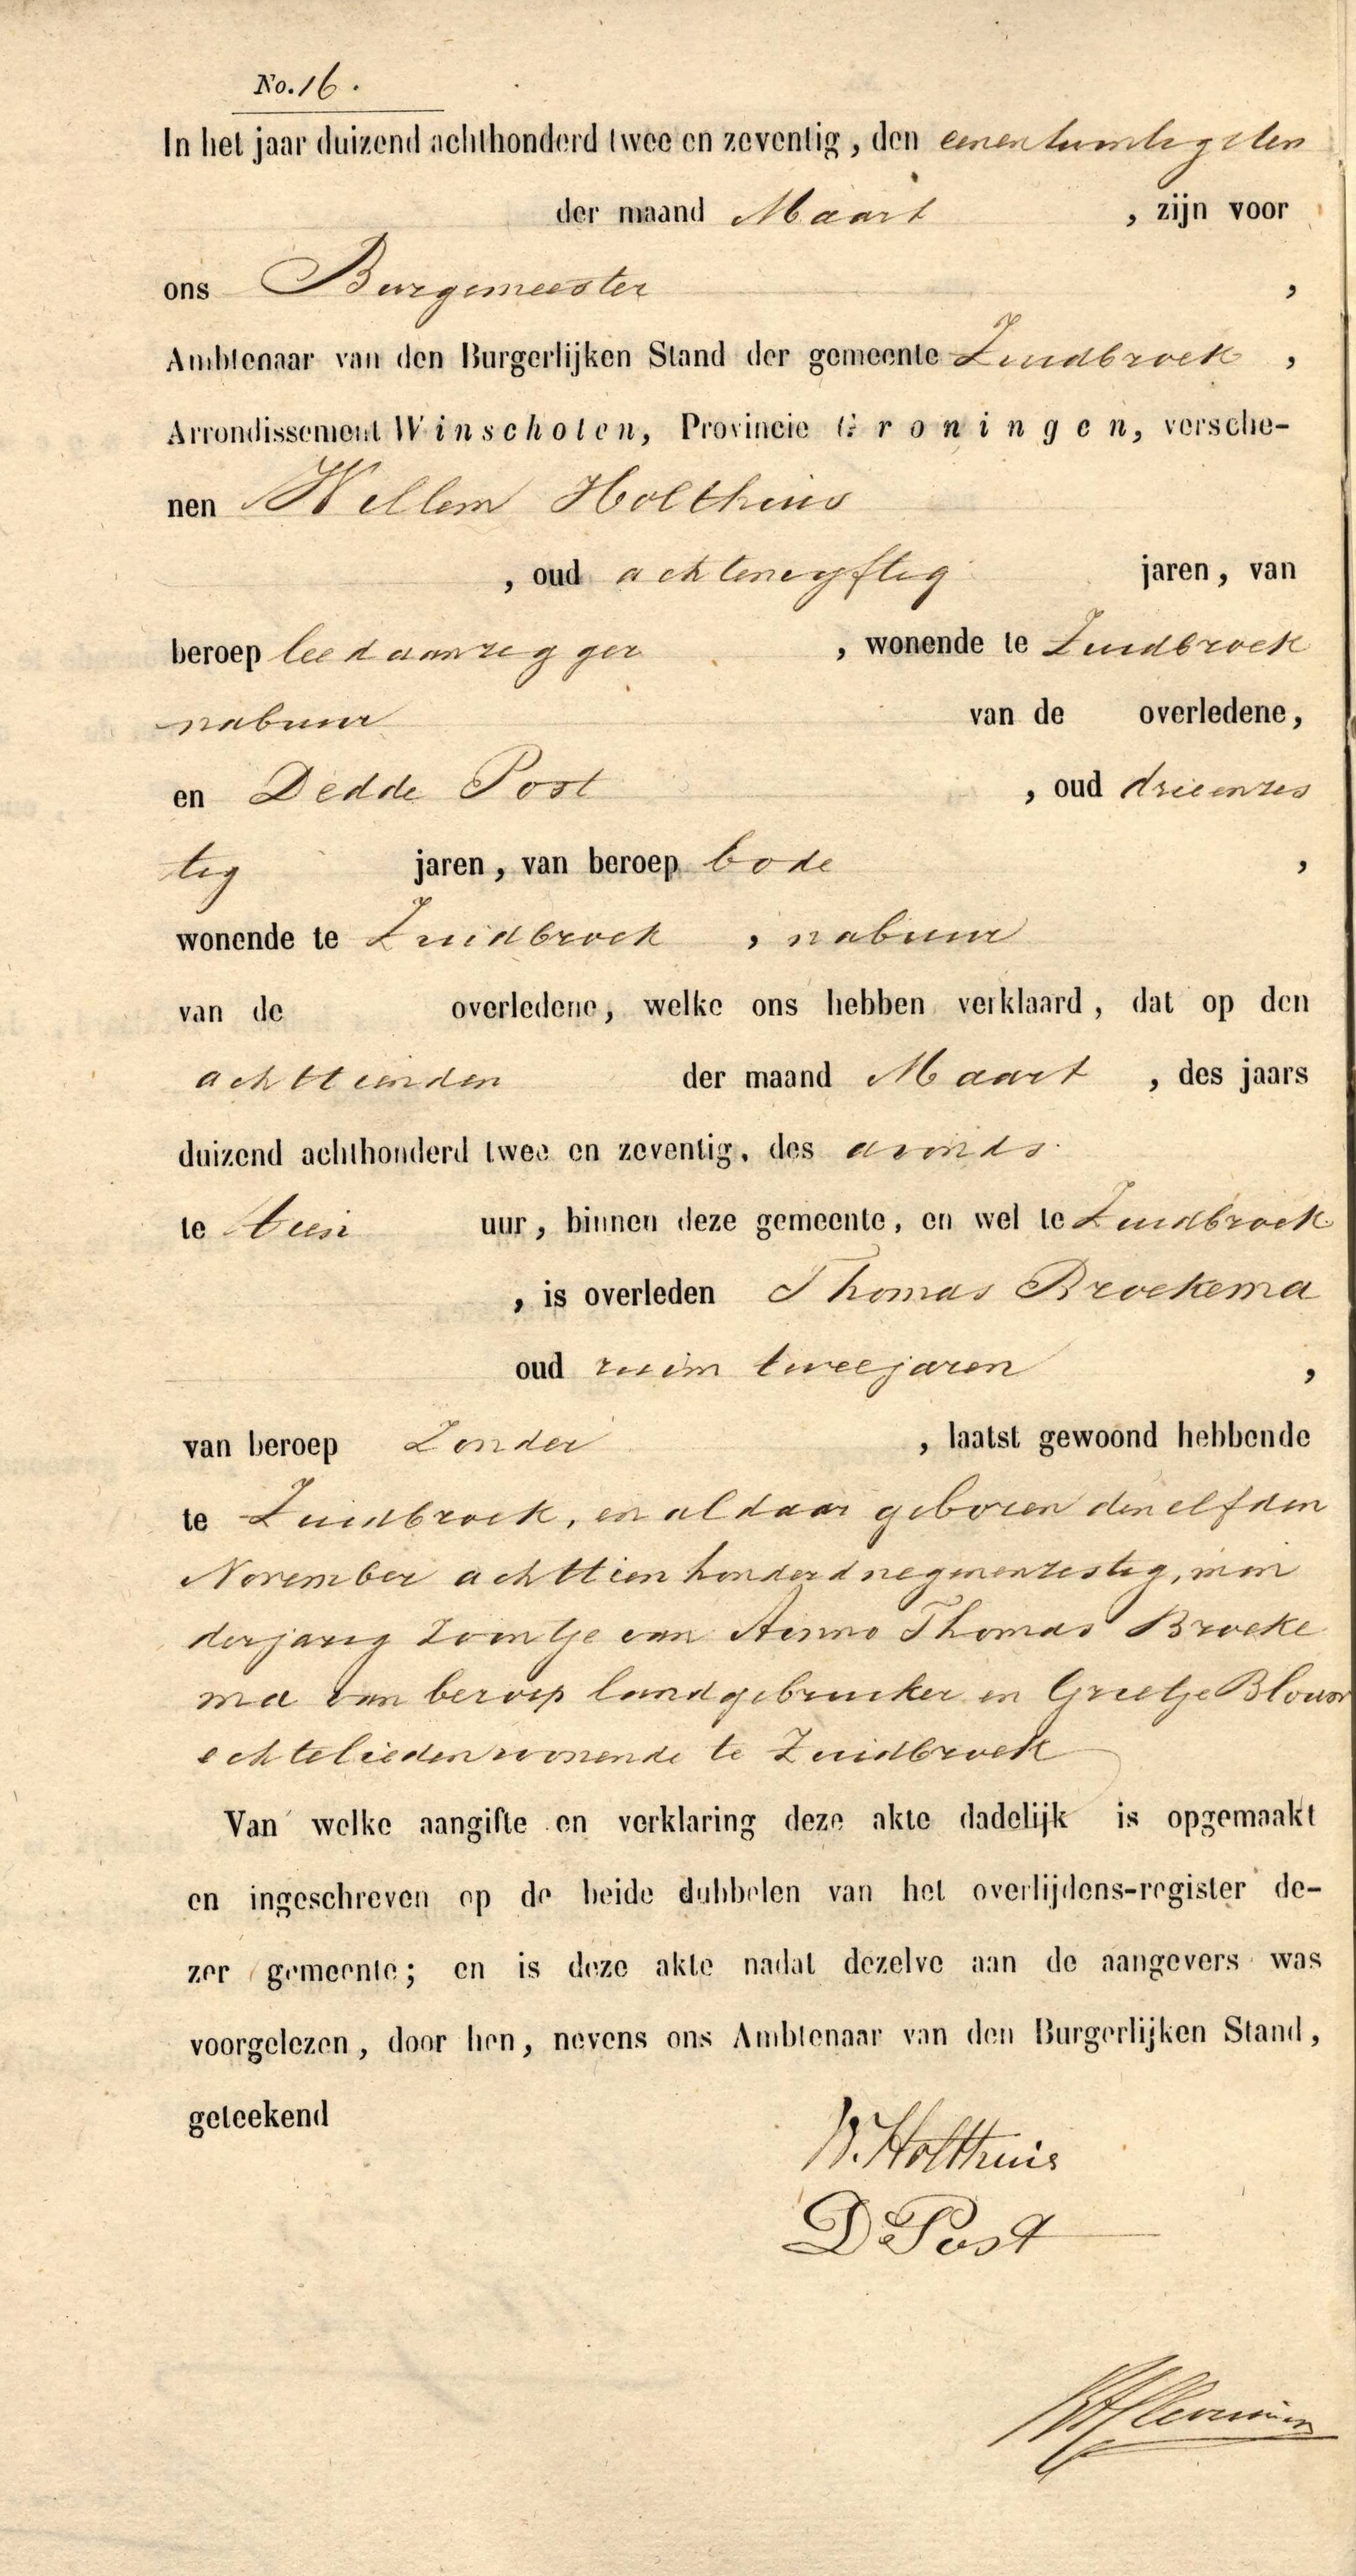 No. 16.
In het jaar duizend achthonderd twee en zeventig, den eenentwintigsten
der maand Maart , zijn voor
ons Burgemeester ,
Ambtenaar van den Burgerlijken Stand der gemeente Zuidbroek ,
Arrondissement Winschoten, Provincie Groningen, versche-
nen Willem Holthuis
, oud achtenvyftig jaren, van
beroep leedaanzegger , wonende te Zuidbroek
nabuur van de overledene,
en Dedde Post , oud drieenzes
tig jaren, van beroep bode ,
wonende te Zuidbroek , nabuur
van de overledene, welke ons hebben verklaard, dat op den
achttienden der maand Maart , des jaars
duizend achthonderd twee en zeventig, des avonds
te tien uur, binnen deze gemeente, en wel te Zuidbroek
, is overleden Thomas Broekema
oud ruim twee jaren ,
van beroep Zonder , laatst gewoond hebbende
te Zuidbroek, en aldaar geboren den elfden
November achttienhonderd negenenzestig, min
derjarig zoontje van Thomas Broeke
ma van beroep landgebruiker en Grietje Blouw
echtelieden wonende te Zuidbroek
Van welke aangifte en verklaring deze akte dadelijk is opgemaakt
en ingeschreven op de beide dubbelen van het overlijdens-register de-
zer gemeente; en is deze akte nadat dezelve aan de aangevers was
voorgelezen, door hen, nevens ons Ambtenaar van den Burgerlijken Stand,
geteekend
W. Holthuis
D Post